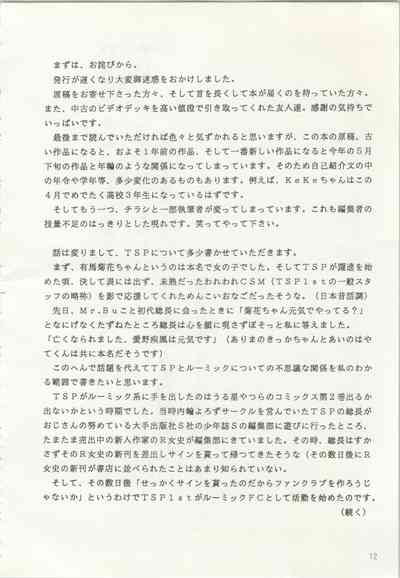 まずは、お詫びから。
発行が遅くなり大変御迷惑をおかけしました。
原稿をお寄せ下さった方々、そして首を長くして本が届くのを待っていた方々。
また、中古のビデオデッキを高い値段で引き取ってくれた友人達。感謝の気持ちで
いっぱいです。
最後まで読んでいただければ色々と気ずかれると思いますが、この本の原稿、古
い作品になると、およそ1年前の作品、そして一番新しい作品になると今年の5月
下旬の作品と年輪のような関係になってしまっています。そのため自己紹介文の中
の年令や学年等、多少変化のあるものもあります。例えば、KeKeちゃんはこの
4月でめでたく高校3年生になっているはずです。
そしてもう一つ、チラシと一部執筆者が変ってしまっています。これも編集者の
技量不足のはっきりとした現れです。笑ってやって下さい。
話は変りまして、TSPについて多少書かせていただきます。
まず、有馬菊花ちゃんというのは本名で女の子でした。そしてTSPが躍進を始
めた頃、決して表には出ず、未熟だったわれわれCSM（TSP1stの一般スタ
ッフの略称）を影で応援してくれためんこいおなごだったそうな。（日本昔話調）
先日、Mr.Buこと初代総長に会ったときに「菊花ちゃん元気でやってる？」
となにげなくたずねたところ総長は心を顔に現さずぼそっと私に答えました。
「亡くなられました、愛野疾風は元気です」（ありまのきっかちゃんとあいのはや
てくんは共に本名だそうです）
このへんで話題を代えてTSPとルーミックについての不思議な関係を私のわか
る範囲で書きたいと思います。
TSPがルーミック系に手を出したのはうる星やつらのコミックス第2巻出るか
出ないかという時期でした。当時内輪よろずサークルを営んでいたTSPの総長が
おじさんの努めている大手出版社S社の少年誌Sの編集部に遊びに行ったところ、
たまたま売出中の新人作家のR女史が編集部にきていました。その時、総長はすか
さずそのR女史の新刊を差出しサインを貰って帰つてきたそうな（その数日後にR
女史の新刊が書店に並べられたことはあまり知られていない。
そして、その数日後「せっかくサインを貰ったのだからファンクラブを作ろうじ
ゃないか」というわけでTSP1stがルーミックFCとして活動を始めたのです。
（続く）
12